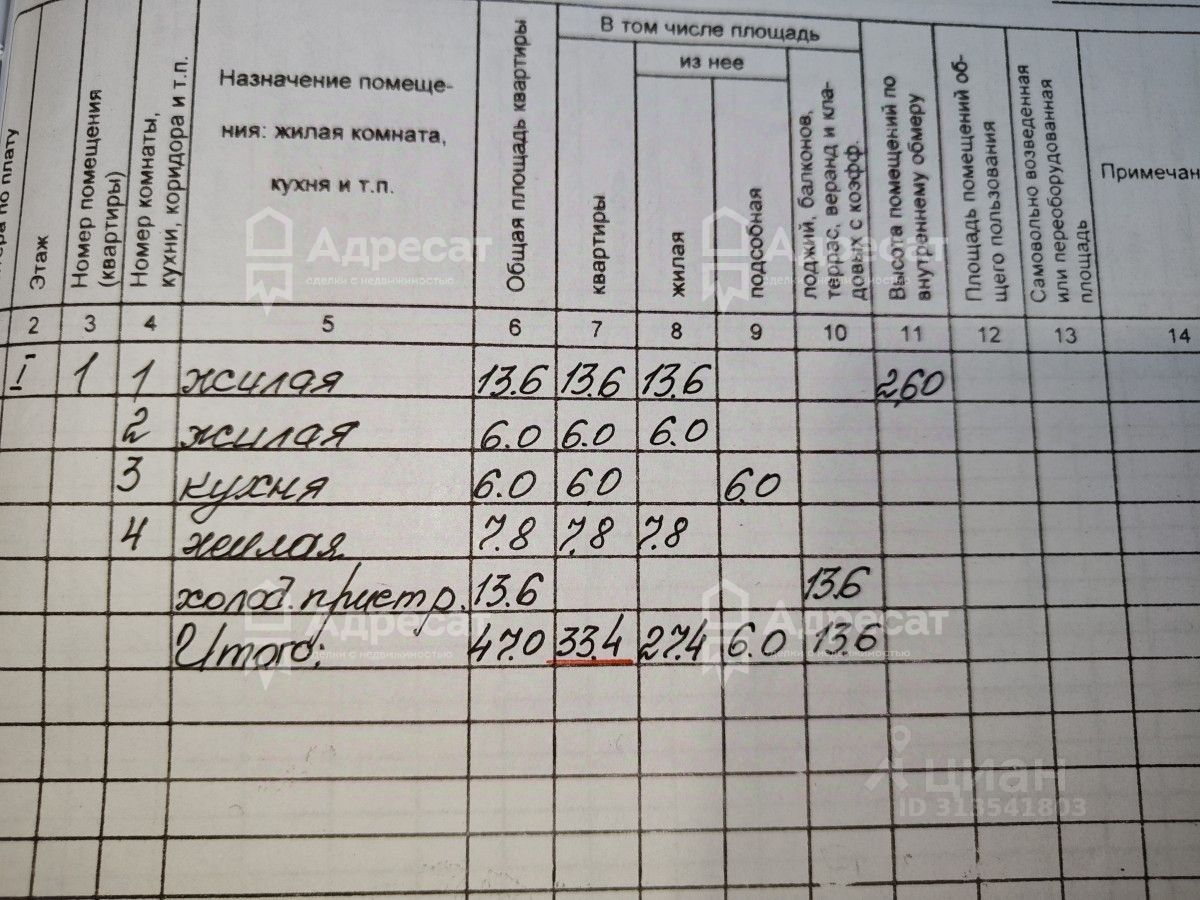 В том числе площадь
из нее
Этаж
Номер помещения
(квартиры)
Номер комнаты,
кухни, коридора и т.п.
Назначение помеще-
ния: жилая комната,
кухня и т.п.
Общая площадь квартиры
квартиры
жилая
подсобная
лоджий, балконов,
террас, веранд и кла-
довых с коэфф.
Высота помещений по
внутреннему обмеру
Площадь помещений об-
щего пользования
Самовольно возведенная
или переоборудованная
площадь
Примечан
по плату
2 3 4 5 6 7 8 9 10 11 12 13 14
I 1 1 жилая 13.6 13.6 13.6 2,60
2 жилая 6.0 6.0 6.0
3 кухня 6.0 6.0 6.0
4 жилая 7.8 7.8 7.8
холод. пристр. 13.6 13.6
Итого: 47.0 33.4 27.4 6.0 13.6
Адресат
сделки с недвижимостью
Адресат
сделки с недвижимостью
Адресат
сделки с недвижимостью
Адресат
сделки с недвижимостью
циан
ID 313541803